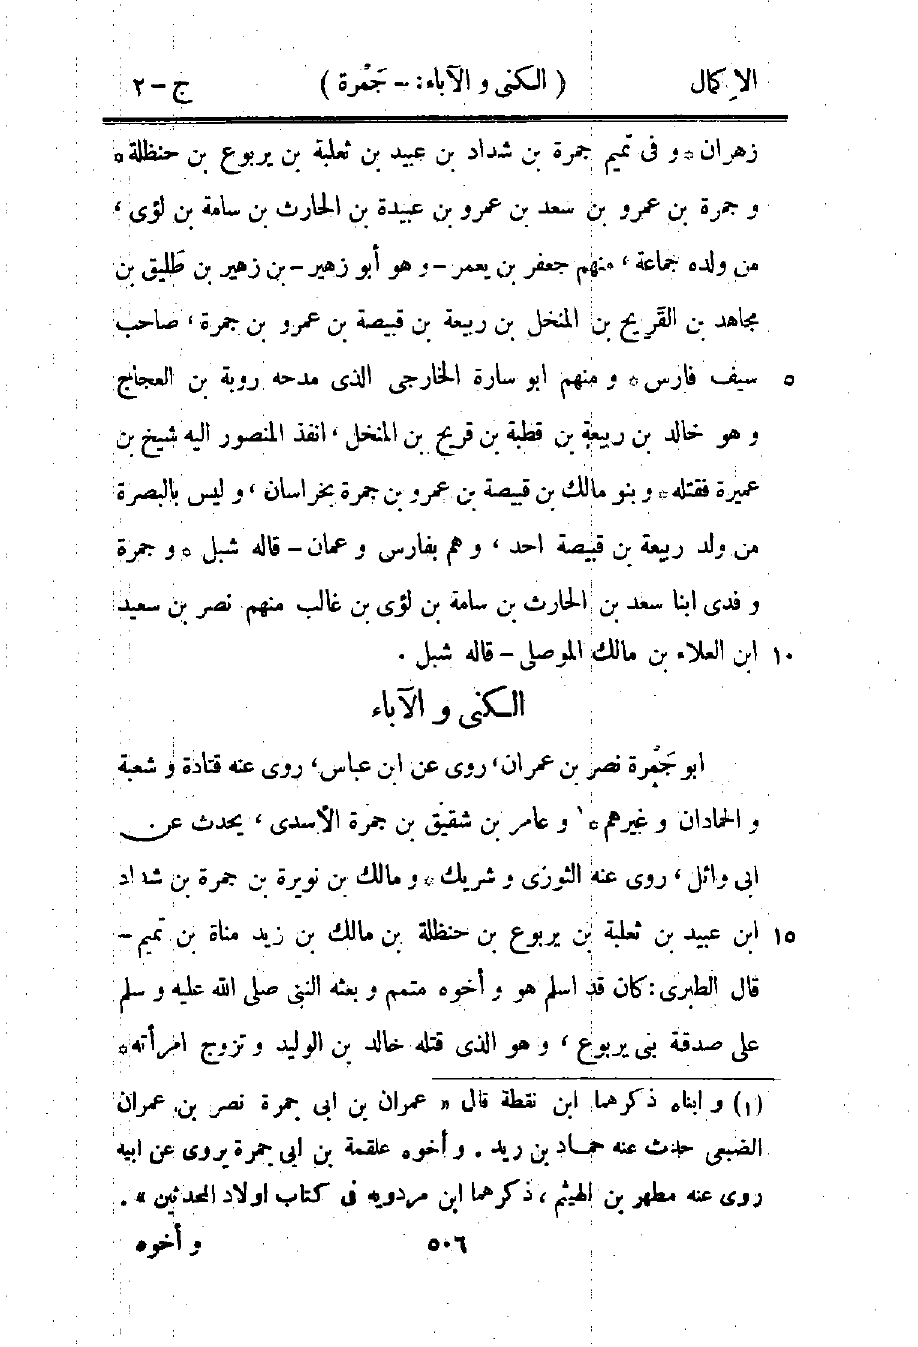 الإكمال ( الكنى و الآباء: – جَمْرة ) ج – ٢
زهران ٭ و فى تميم جمرة بن شداد بن عبيد بن ثعلبة بن يربوع بن حنظلة ٭
و جمرة بن عمرو بن سعد بن عمرو بن عبيدة بن الحارث بن سامة بن لؤى ،
من ولده جماعة ، منهم جعفر بن يعمر – و هو أبو زهير – بن زهير بن طَليق بن
مجاهد بن القَريح بن المنخل بن ربيعة بن قبيصة بن عمرو بن جمرة ، صاحب
٥ سيف فارس ٭ و منهم ابو سارة الخارجى الذى مدحه روبة بن العجاج
و هو خالد بن ربيعة بن قطبة بن قريح بن المنخل ، انفذ المنصور اليه شيخ بن
عميرة فقتله ٭ و بنو مالك بن قبيصة بن عمرو بن جمرة بخراسان ، و ليس بالبصرة
من ولد ربيعة بن قبيصة احد ، و هم بفارس و عمان – قاله شبل ٭ و جمرة
و فدى ابنا سعد بن الحارث بن سامة بن لؤى بن غالب منهم نصر بن سعيد
١٠ ابن العلاء بن مالك الموصلى – قاله شبل .
الكنى و الآباء
ابو جَمْرة نصر بن عمران ، روى عن ابن عباس ، روى عنه قتادة و شعبة
و الحمادان و غيرهم ٭ ١ و عامر بن شقيق بن جمرة الأسدى ، يحدث عن
ابى وائل ، روى عنه الثورى و شريك ٭ و مالك بن نويرة بن جمرة بن شداد
١٥ ابن عبيد بن ثعلبة بن يربوع بن حنظلة بن مالك بن زيد مناة بن تميم –
قال الطبرى : كان قد اسلم هو و أخوه متمم و بعثه النبى صلى الله عليه و سلم
على صدقة بنى يربوع ، و هو الذى قتله خالد بن الوليد و تزوج امرأته ٭
(١) و ابناه ذكرهما ابن نقطة قال « عمران بن ابى جمرة نصر بن عمران
الضبعى حدث عنه حماد بن زيد . و أخوه علقمة بن ابى جمرة يروى عن ابيه
روى عنه مطهر بن الهيثم ، ذكرهما ابن مردويه فى كتاب اولاد المحدثين » .
٥٠٦ و أخوه